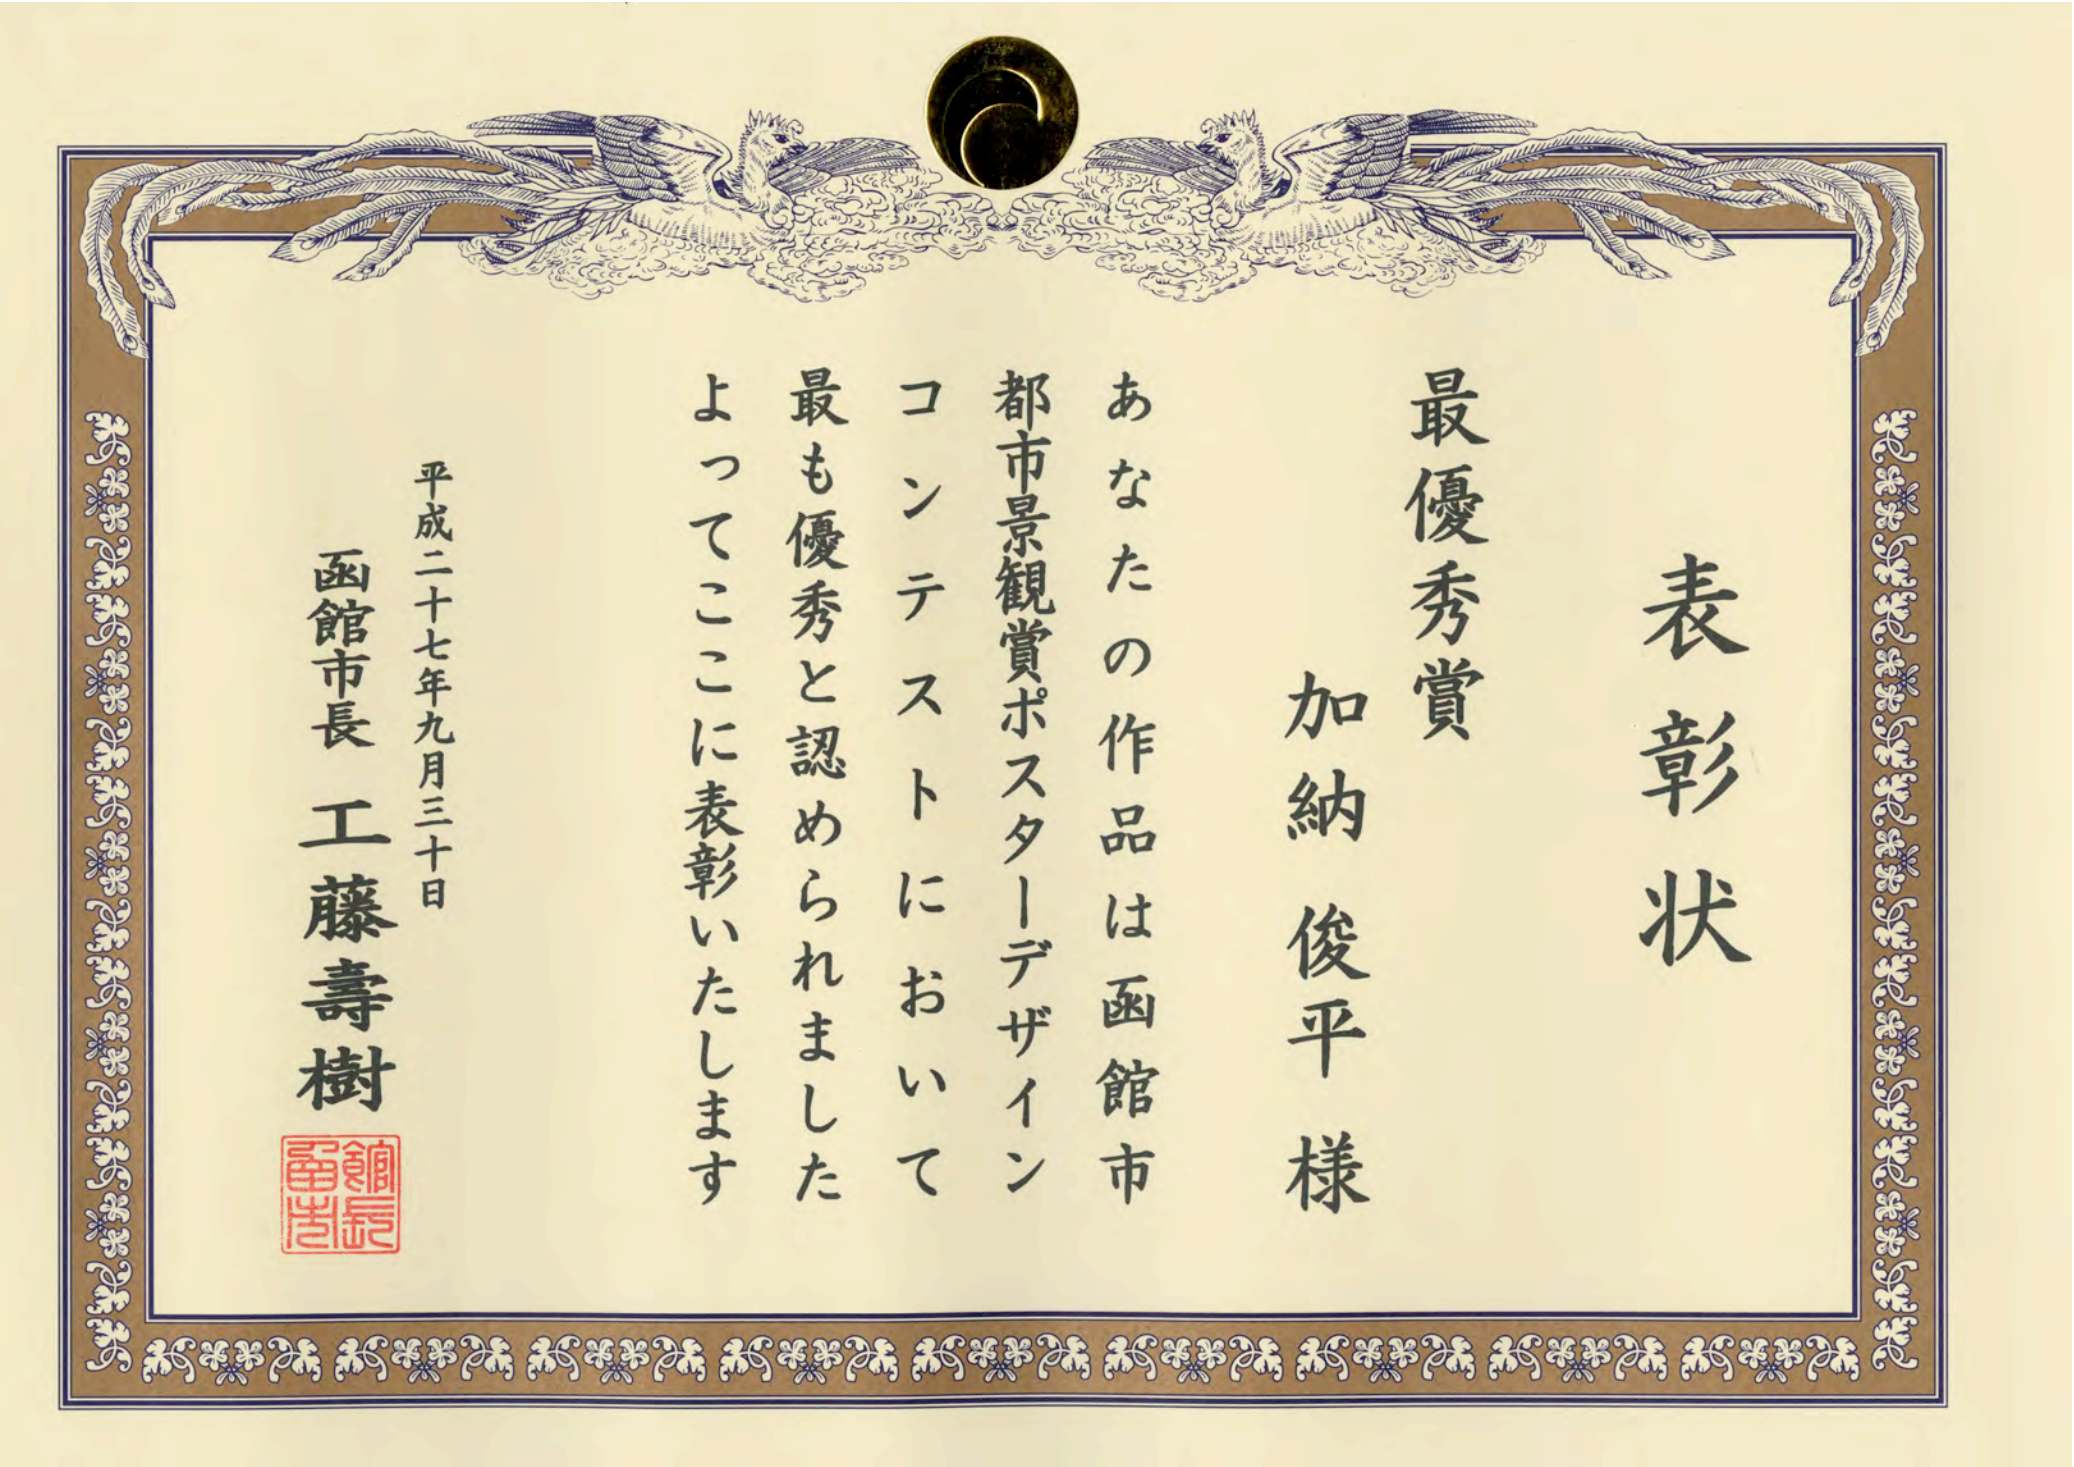 表彰状
最優秀賞
加納 俊平 様
あなたの作品は函館市
都市景観賞ポスターデザイン
コンテストにおいて
最も優秀と認められました
よってここに表彰いたします
平成二十七年九月三十日
函館市長 工藤壽樹
函館市長